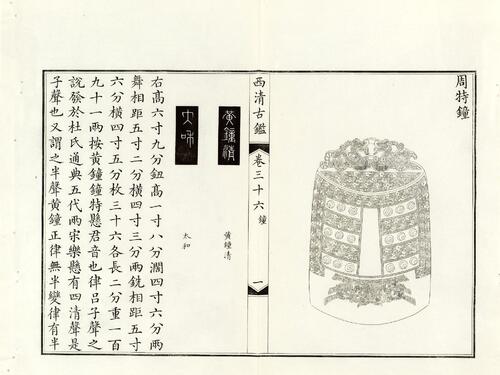 周特鐘
西清古鑑
卷三十六 鐘
一
黃鐘清
黃鐘清
大咊
太和
右高六寸九分鈕高一寸八分濶四寸六分兩
舞相距五寸二分橫四寸三分兩銑相距五寸
六分橫四寸五分枚三十六各長二分重一百
九十一兩按黃鐘鐘特懸君音也律呂子聲之
說發於杜氏通典五代兩宋樂懸有四清聲是
子聲也又謂之半聲黃鐘正律無半變律有半